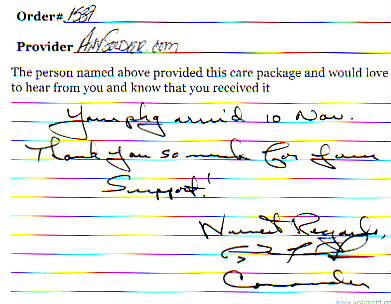 Order# 1537
Provider AnySoldier.com
The person named above provided this care package and would love
to hear from you and know that you received it
Your pkg arriv'd 10 Nov.
Thank you so much for your
Support!
Warmest Regards,
Commander